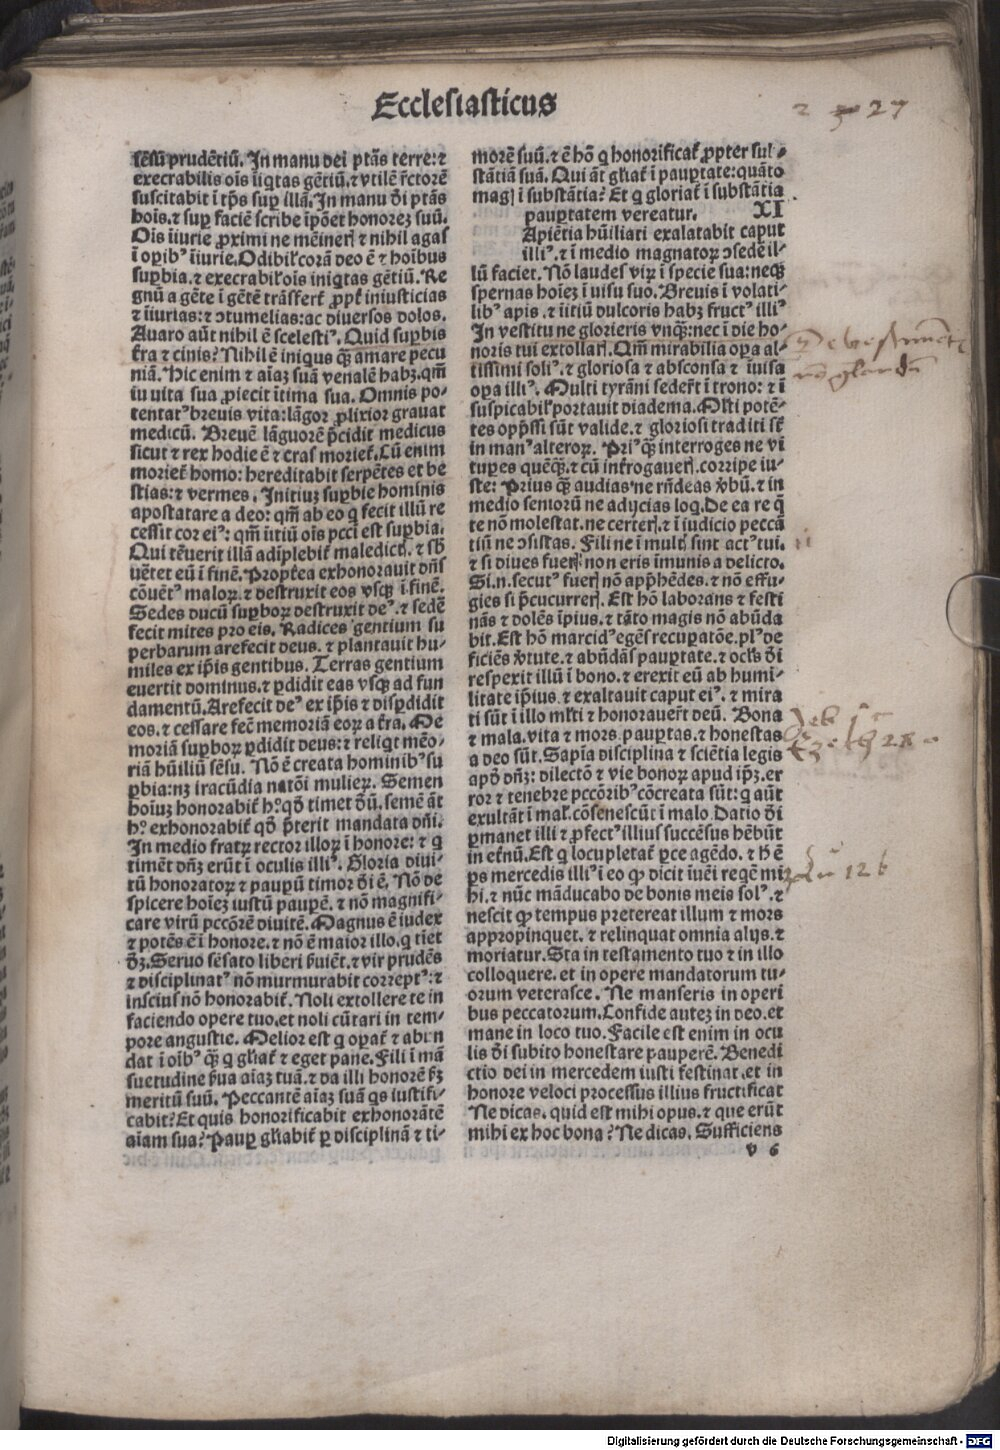 Ecclesiasticus
2 27
sēsū prudētiū. In manu dei ptās terre: ⁊
execrabilis oīs īiqtas gētiū. ⁊ vtilē r̄ctorē
suscitabit ī tp̄s sup illā. In manu d̄i ptās
hoīs. ⁊ sup faciē scribe īpōet honoreꝫ suū.
Oīs īiurie ꝓximi ne mēineri ⁊ nihil agas
ī oꝑibꝰ īiurie. Odibil̓ corā deo ē ⁊ hoībus
suꝑbia. ⁊ execrabil̓ oīs iniqtas gētiū. Re
gnū a gēte ī gētē trāsfert̄ ꝓpt̄ iniusticias
⁊ īiurias: ⁊ ↄtumelias: ac diuersos dolos.
Auaro aūt nihil ē scelestiꝰ. Quid suꝑbis
t̄ra ⁊ cinis? Nihil ē iniqus q̄ꝫ amare pecu
niā. Hic enim ⁊ aīaꝫ suā venalē habꝫ. qm̄
iu uita sua ꝓiecit ītima sua. Omnis po-
tentatꝰ breuis vita: lāgor ꝓlixior grauat
medicū. Breuē lāguorē p̄cidit medicus
sicut ⁊ rex hodie ē ⁊ cras moriet̄. Cū enim
moriet̄ homo: hereditabit serpētes et be
stias: ⁊ vermes. Initiuꝫ suꝑbie hominis
apostatare a deo: qm̄ ab eo q fecit illū re
cessit cor eiꝰ: qm̄ īitiū oīs pcci est suꝑbia.
Qui tēuerit illā adiplebit̄ maledict. ⁊ sb̄
uētet eū ī finē. Propt̄ea exhonorauit dn̄s
cōuētꝰ maloꝝ. ⁊ destruxit eos vsqꝫ ī finē.
Sedes ducū suꝑboꝝ destruxit deꝰ. ⁊ sedē
fecit mites pro eis. Radices gentium su
perbarum arefecit deus. ⁊ plantauit hu-
miles ex ip̄is gentibus. Terras gentium
euertit dominus. ⁊ ꝑdidit eas vsqꝫ ad fun
damentū. Arefecit deꝰ ex ip̄is ⁊ disꝑdidit
eos. ⁊ cessare fec̄ memoriā eoꝝ a t̄ra. Me
moriā suꝑboꝝ ꝑdidit deus: ⁊ reliqt mēo-
riā hūiliū sēsu. Nō ē creata hominibꝰ su
ꝑbia: nꝫ iracūdia natōi mulieꝝ. Semen
hoīuꝫ honorabit̄ hͦ. qd̄ timet d̄ū. semē āt
hͦ exhonorabit̄ qd̄ p̄terit mandata dn̄i.
In medio fratꝝ rector illoꝝ ī honore: ⁊ q
timēt dn̄ꝫ erūt ī oculis illiꝰ. Gloria diui-
tū honoratoꝝ ⁊ pauꝑū timor d̄i ē. Nō de
spicere hoīeꝫ iustū pauꝑē. ⁊ nō magnifi-
care virū pccōrē diuitē. Magnus ē iudex
⁊ potēs ē ī honore. ⁊ nō ē maior illo. q tīet
d̄ꝫ. Seruo sēsato liberi ẜuiēt. ⁊ vir prudēs
⁊ disciplinatꝰ nō murmurabit correptꝰ: ⁊
insciusꝰ nō honorabit̄. Noli extollere te in
faciendo opere tuo. et noli cūtari in tem-
pore angustie. Melior est q oꝑat̄ ⁊ abun
dat ī oībꝰ q̄ꝫ q gl̓iat̄ ⁊ eget pane. Fili ī mā
suetudine ẜua aīaꝫ tuā. ⁊ da illi honorē ẜꝫ
meritū suū. Peccantē aīaꝫ suā qs iustifi-
cabit? Et quis honorificabit exhonorātē
aīam sua? Pauꝑ gl̓iabit̄ ꝑ disciplinā ⁊ ti-
morē suū. ⁊ ē hō q honorificat̄ ꝓpter sub-
stātiā suā. Qui āt gl̓iat̄ ī pauꝑtate: quāto
mag ī substātia? Et q gloriat̄ ī substātia
pauꝑtatem vereatur. XI
Apiētia hūiliati exalatabit caput
illiꝰ. ⁊ ī medio magnatoꝝ ↄsedē il-
lū faciet. Nō laudes viꝝ ī specie sua: neqꝫ
spernas hoīeꝫ ī uisu suo. Breuis ī volati-
libꝰ apis. ⁊ īitiū dulcoris habꝫ fructꝰ illiꝰ
In vestitu ne glorieris vnq̄ꝫ: nec ī die ho-
noris tui extollari. Qm̄ mirabilia oꝑa al-
tissimi soliꝰ. ⁊ gloriosa ⁊ absconsa ⁊ īuisa
oꝑa illiꝰ. Multi tyrāni sedert̄ ī trono: ⁊ ī
suspicabil̓ portauit diadema. Ml̓ti potē-
tes opp̄ssi sūt valide. ⁊ gloriosi traditi st̄
in manꝰ alteroꝝ. Priꝰ q̄ꝫ interroges ne vi
tuꝑes quēq̄ꝫ. ⁊ cū int̄rogaueri. corripe iu-
ste: Prius q̄ꝫ audias ne rn̄deas v̄bū. ⁊ in
medio senioru̅ ne adijcias loq. De ea re q̄
te nō molestat. ne certeri. ⁊ ī iudicio peccā
tiū ne ↄsistas. Fili ne ī mult sint actꝰ tui.
⁊ si diues fueri: non eris īmunis a delicto.
Si. n. secutꝰ fueri nō app̄hēdes. ⁊ nō effu-
gies si p̄cucurreri. Est hō laborans ⁊ festi
nās ⁊ dolēs īpius. ⁊ tāto magis nō abūda
bit. Est hō marcidꝰ egēs recuꝑatōe. plꝰ de
ficiēs v̄tute. ⁊ abūdās pauꝑtate. ⁊ ocl̓s d̄i
respexit illū ī bono. ⁊ erexit eū ab humi-
litate ip̄ius. ⁊ exaltauit caput eiꝰ. ⁊ mira
ti sūt ī illo ml̓ti ⁊ honorauert̄ deū. Bona
⁊ mala. vita ⁊ mors. pauꝑtas. ⁊ honestas
a deo sūt. Sapīa disciplina ⁊ sciētia legis
apd̄ dn̄ꝫ: dilectō ⁊ vie bonoꝝ apud ip̄ꝫ. er
ror ⁊ tenebre pccōribꝰ cōcreata sūt: q aūt
exultāt ī mal̓. cōsenescūt ī malo. Datio d̄i
ꝑmanet illi ⁊ ꝓfectꝰ illius succēsus hēbūt
in et̄nū. Est q locupletat̄ ꝑce agēdo. ⁊ h̄ ē
ꝑs mercedis illiꝰ ī eo qp dicit īuēi regē mi
hi. ⁊ nūc māducabo de bonis meis solꝰ. ⁊
nescit qp tempus pretereat illum ⁊ mors
appropinquet. ⁊ relinquat omnia alijs. ⁊
moriatur. Sta in testamento tuo ⁊ in illo
colloquere. et in opere mandatorum tu-
orum veterasce. Ne manseris in operi
bus peccatorum. Confide auteꝫ in deo. et
mane in loco tuo. Facile est enim in ocu
lis d̄i subito honestare pauperē. Benedi
ctio dei in mercedem iusti festinat. et in
honore veloci processus illius fructificat
Ne dicas. quid est mihi opus. ⁊ que erūt
mihi ex hoc bona? Ne dicas. Sufficiens
v 6
Lu 12 b
Digitalisierung gefördert durch die Deutsche Forschungsgemeinschaft - DFG